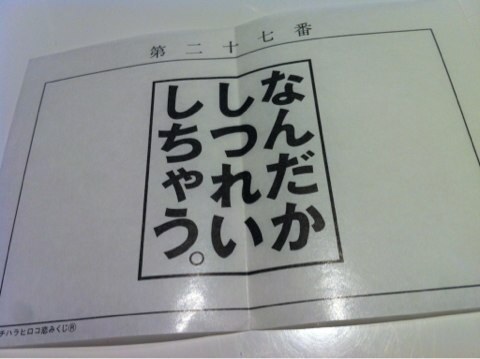 第二十七番
なんだか
しつれい
しちゃう。
チハラヒロコ恋みくじ